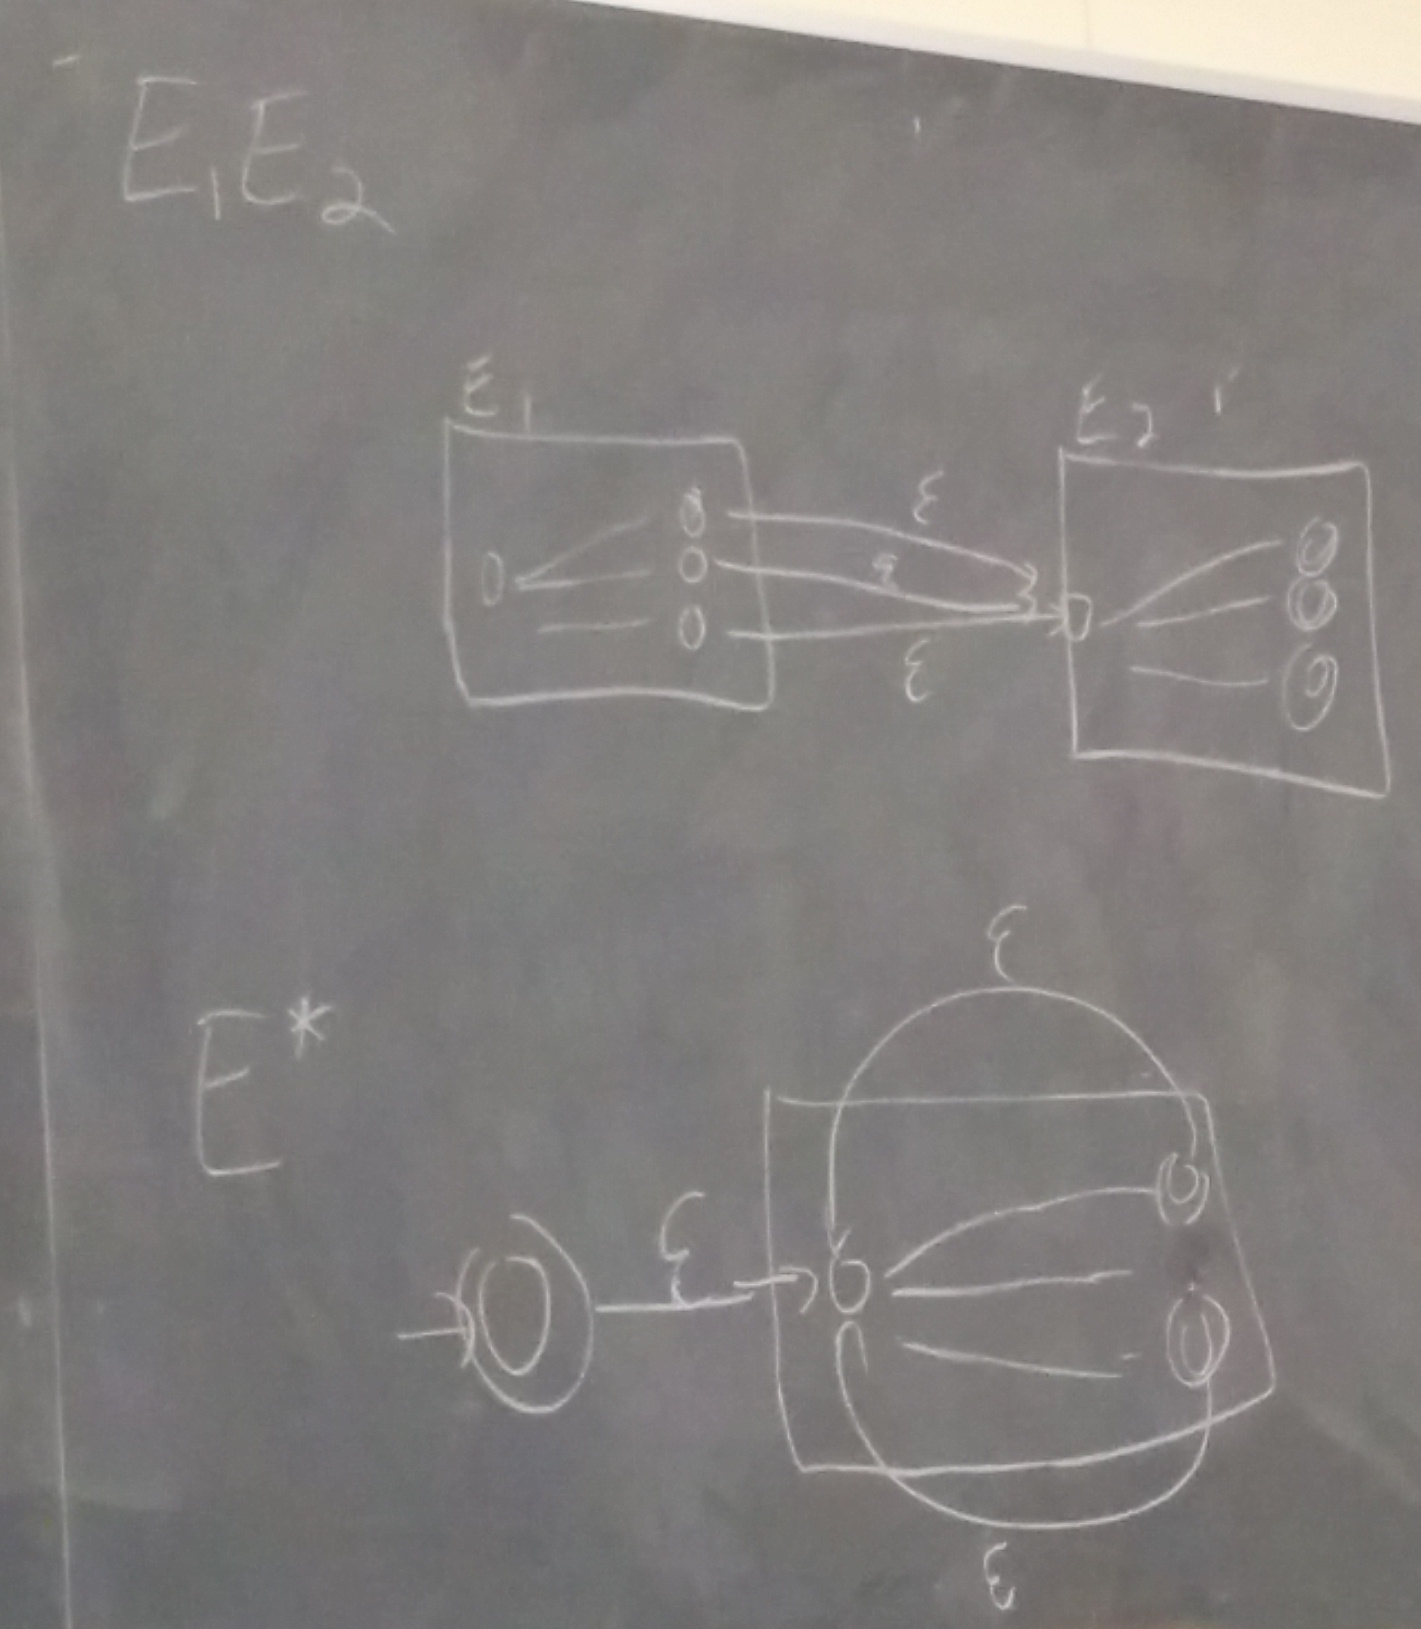 E₁E₂
E₁
E₂
ε
ε
ε
ε
E*
ε
ε